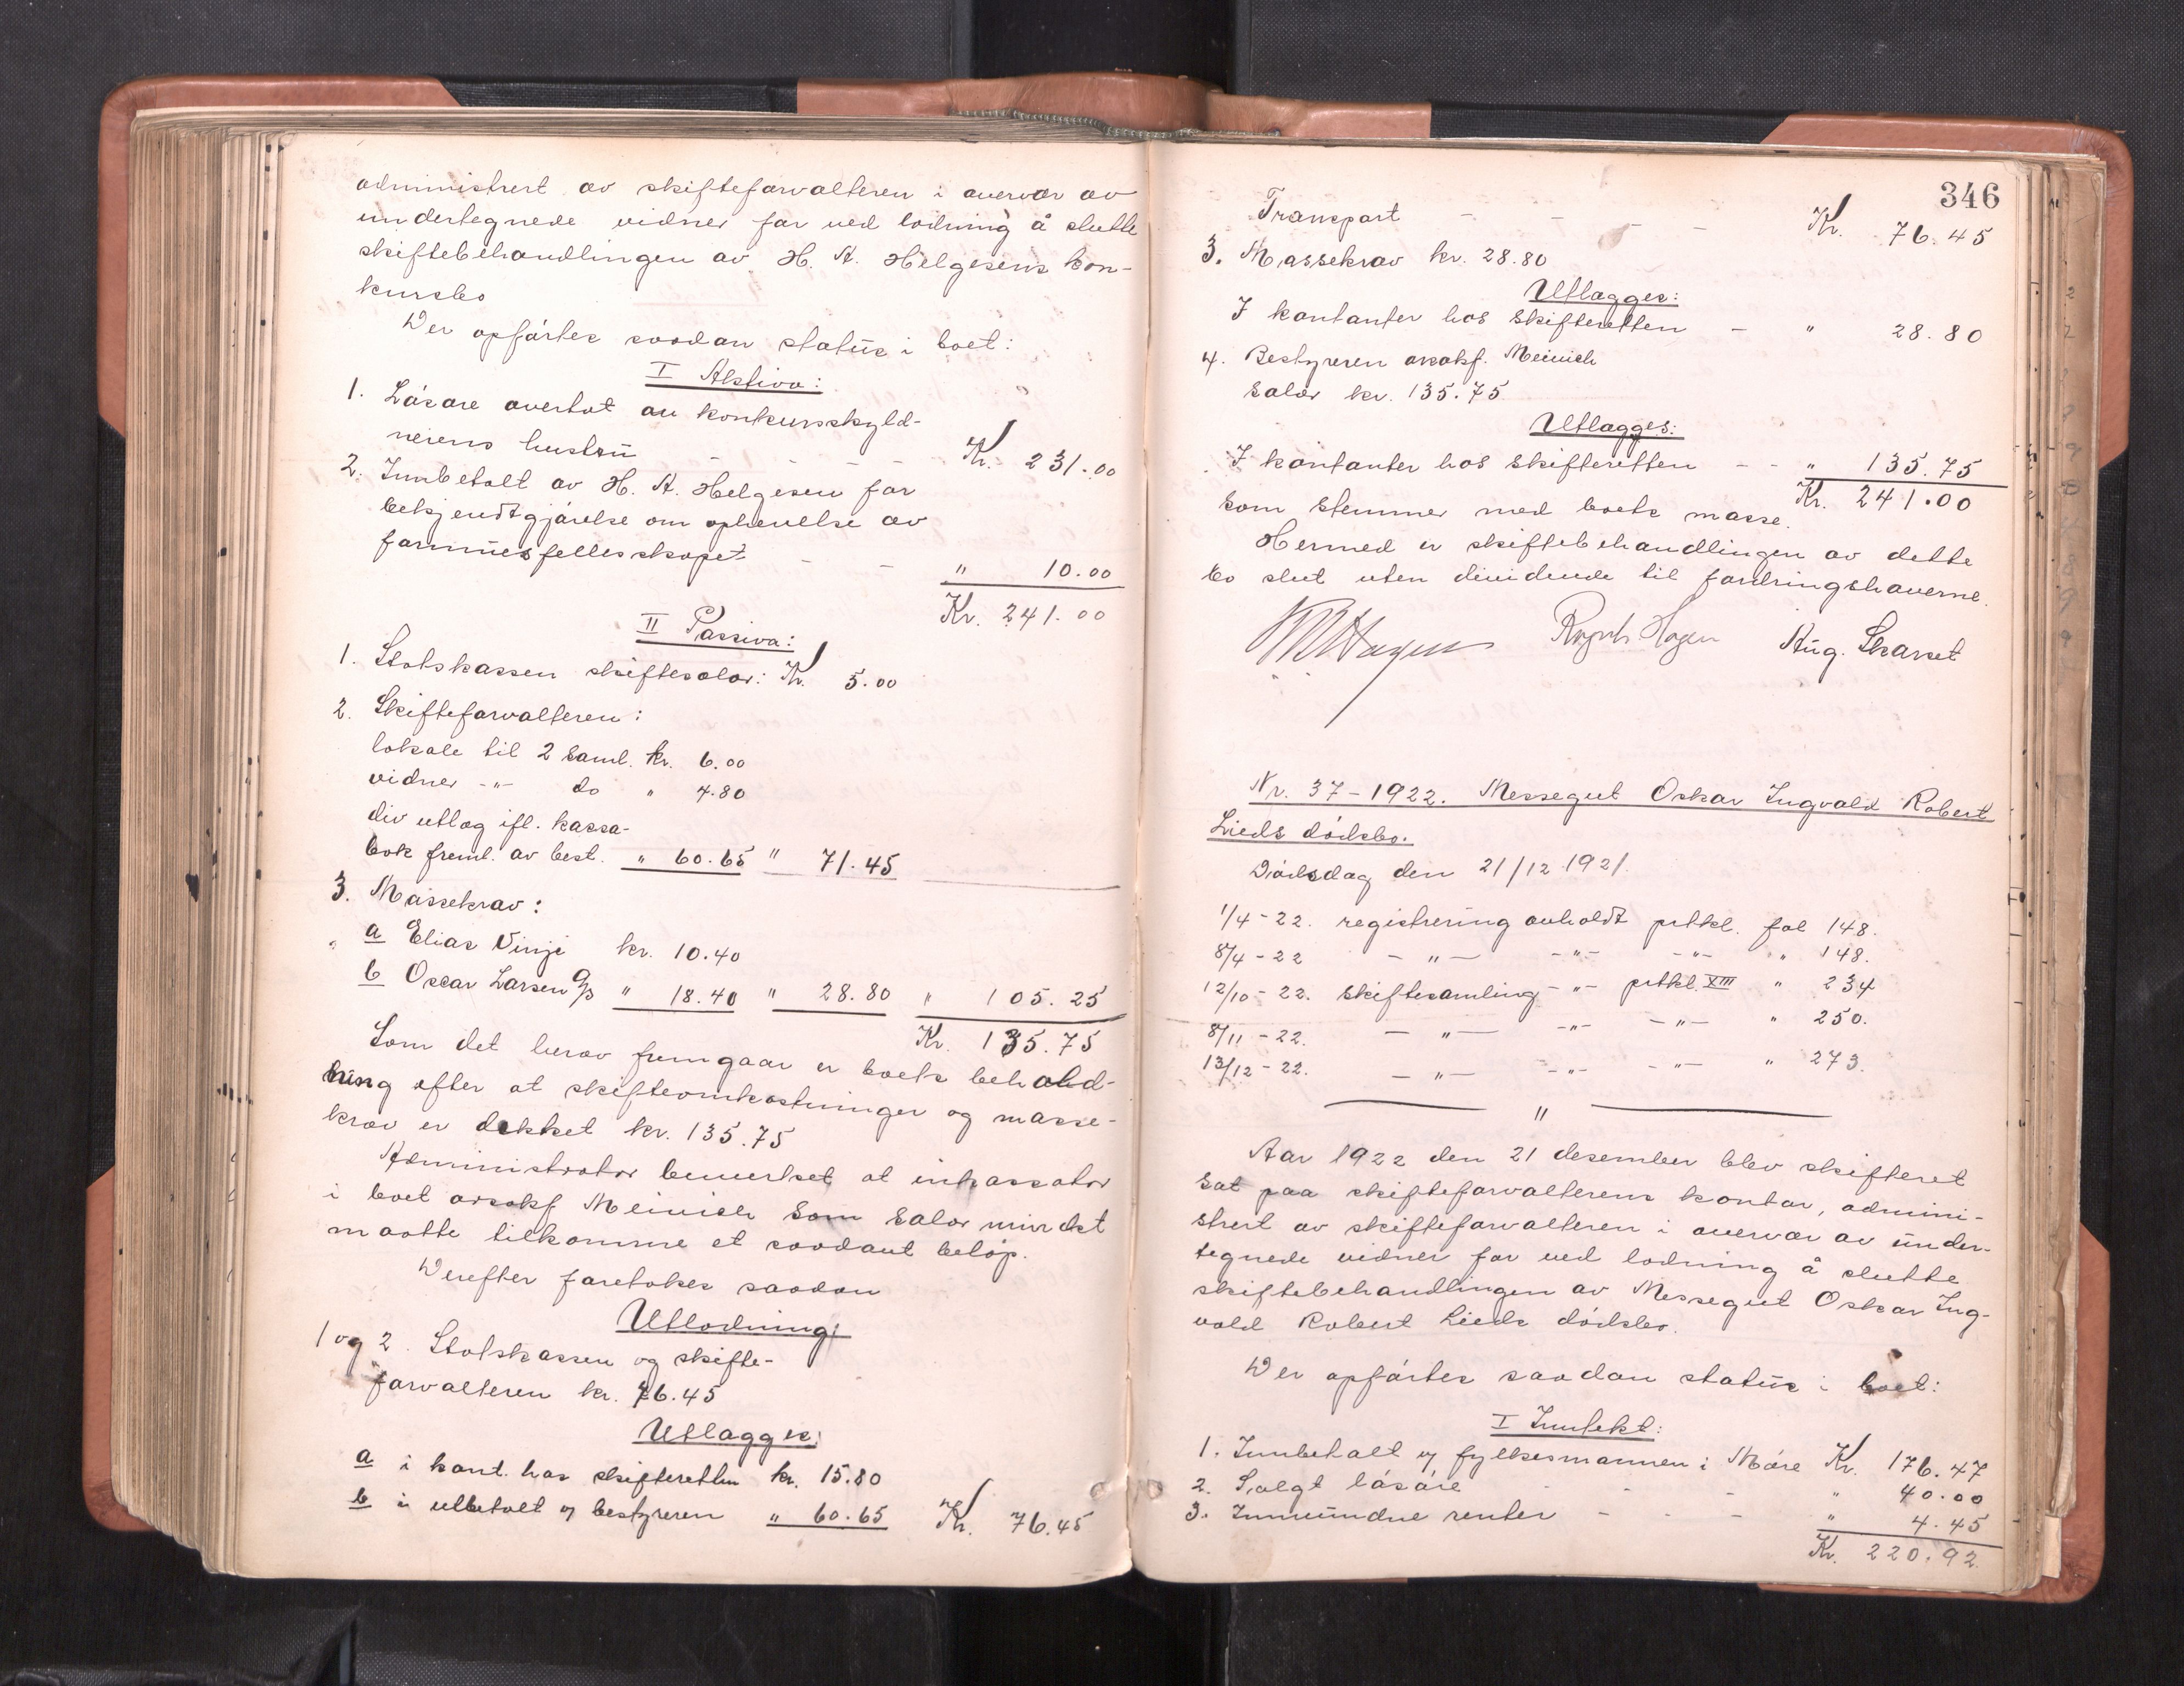 administrert av skifteforvalteren i overvær av
undertegnede vidner for ved lodning å slutte
skiftebehandlingen av H. A. Helgesens kon-
kursbo
Der opførtes saadan status i boet:
I Aktiva:
1. Løsøre overtat av konkursskyld-
nerens hustru - - - - Kr. 231.00
2. Innbetalt av H. A. Helgesen for
bekjendtgjørelse om ophevelse av
formuesfellesskapet - - " 10.00
Kr. 241.00
II Passiva:
1. Statskassen skiftesalær: Kr. 5.00
2. Skifteforvalteren:
lokale til 2 saml. kr. 6.00
vidner -"- do " 4.80
div utlæg ifl. kassa-
bok freml. av best. " 60.65 " 71.45
3. Massekrav:
a Elias Vinje kr. 10.40
b Oscar Larsen A/S " 18.40 " 28.80 " 105.25
Kr. 135.75
Som det herav fremgaar er boets behold-
ning efter at skifteomkostninger og masse-
krav er dekket kr. 135.75
Administrator bemerket at inkassator
i boet orsakf Meinich som salær mindst
maatte tilkomme et saadant beløp.
Derefter foretokes saadan
Utlodning:
1 og 2. Statskassen og skifte-
forvalteren kr. 76.45
Utlægges:
a i kont. hos skifteretten kr. 15.80
b i utbetalt av bestyreren " 60.65 Kr. 76.45
346
Transport - - - - Kr. 76.45
3. Massekrav kr. 28.80
Utlægges:
I kontanter hos skifteretten - " 28.80
4. Bestyreren orsakf. Meinich
salær kr. 135.75
Utlægges:
I kontanter hos skifteretten - - " 135.75
Kr. 241.00
som stemmer med boets masse.
Hermed er skiftebehandlingen av dette
bo slut uten dividende til fordringshaverne.
Hagen Aug. Skarset
Nr. 37-1922. Messegut Oskar Ingvald Robert
Lieds dødsbo.
Dødsdag den 21/12 1921.
1/4-22. registrering avholdt prtkl. fol 148.
8/4-22 -"- -"- -"- " 148.
12/10-22. skiftesamling -"- prtkl. XIII " 234
8/11-22. -"- -"- -"- " 250.
13/12-22. -"- -"- -"- " 273.
"
Aar 1922 den 21 desember blev skifteret
sat paa skifteforvalterens kontor, admini-
strert av skifteforvalteren i overvær av under-
tegnede vidner for ved lodning å slutte
skiftebehandlingen av Messegut Oskar Ing-
vald Robert Lieds dødsbo.
Der opførtes saadan status i boet:
I Inntekt:
1. Innbetalt av fylkesmannen i Møre Kr. 176.47
2. Solgt løsøre - - - " 40.00
3. Innvundne renter - - - " 4.45
Kr. 220.92.